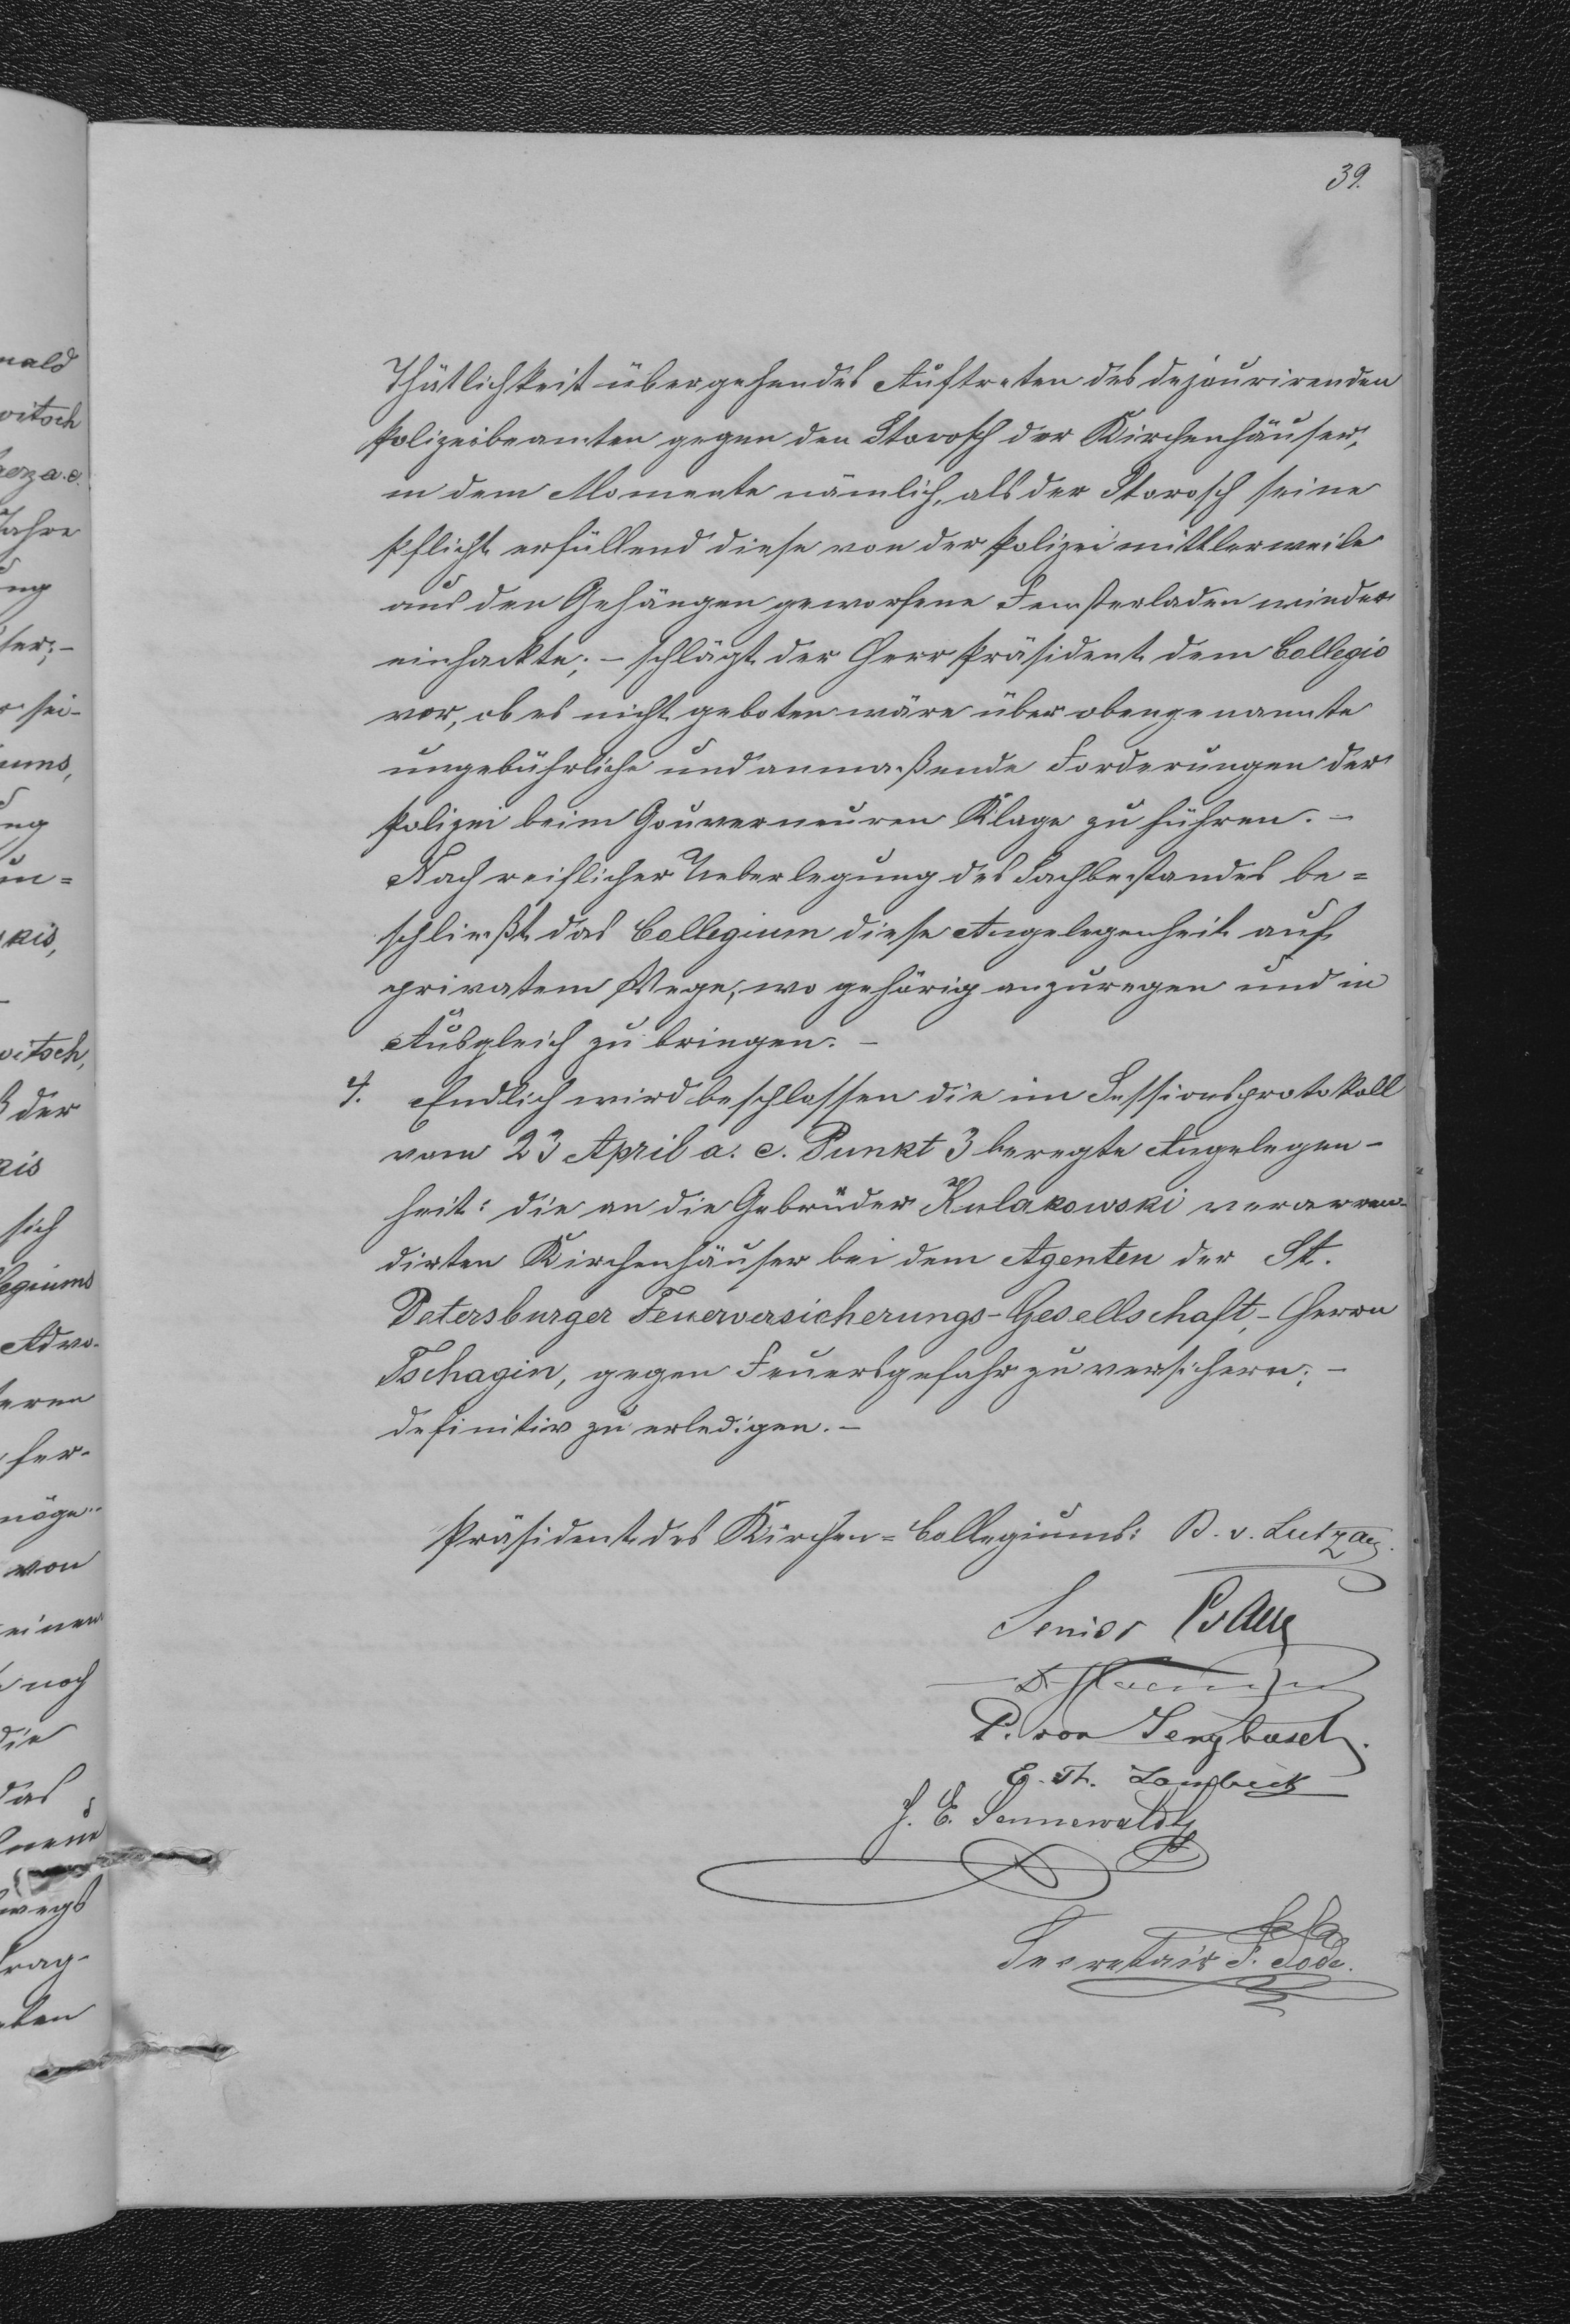 39.
Thätlichkeit übergehendes Auftreten des dejourirenden
Polizeibeamten gegen den Storosch der Kirchenhäuser,
in dem Momente nämlich, als der Storosch seine
Pflicht erfüllend diese von der Polizei mittlerweile
aus den Gehängen geworfene Fensterladen wieder
einhackte; – schlägt der Herr Präsident dem Collegio
vor, ob es nicht geboten wäre über obengenannte
ungebührliche und anmaßende Forderungen der
Polizei beim Gouverneuren Klage zu führen. –
Nach reiflicher Ueberlegung des Sachbestandes be=
schließt das Collegium diese Angelegenheit auf
privatem Wege, wo gehörig anzuregen und in
Ausgleich zu bringen. –
4. Endlich wird beschlossen die im Sessionsprotokoll
vom 23 April a. c. Punkt 3 beregte Angelegen-
heit: die an die Gebrüder Kulakowski verarren-
dirten Kirchenhäuser bei dem Agenten der St.
Petersburger Feuerversicherungs-Gesellschaft, – Herrn
Tschagin, gegen Feuersgefahr zu versichern; –
definitiv zu erledigen. –
Präsident des Kirchen=Collegiums: B. v. Lutzau.
Senior
P. von Sengbusch.
E. Th. Lombeck
J. E. Sennewaldt
Secretair F. Tode.